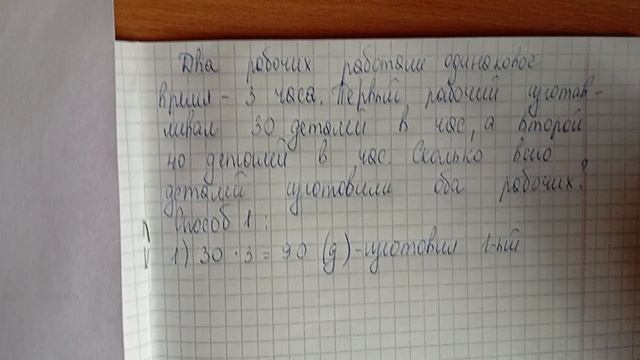 Два рабочих работали одинаковое
время - 3 часа. Первый рабочий изготав-
ливал 30 деталей в час, а второй
40 деталей в час. Сколько всего
деталей изготовили оба рабочих?
Способ 1:
1) 30 · 3 = 90 (д) - изготовил 1-ый